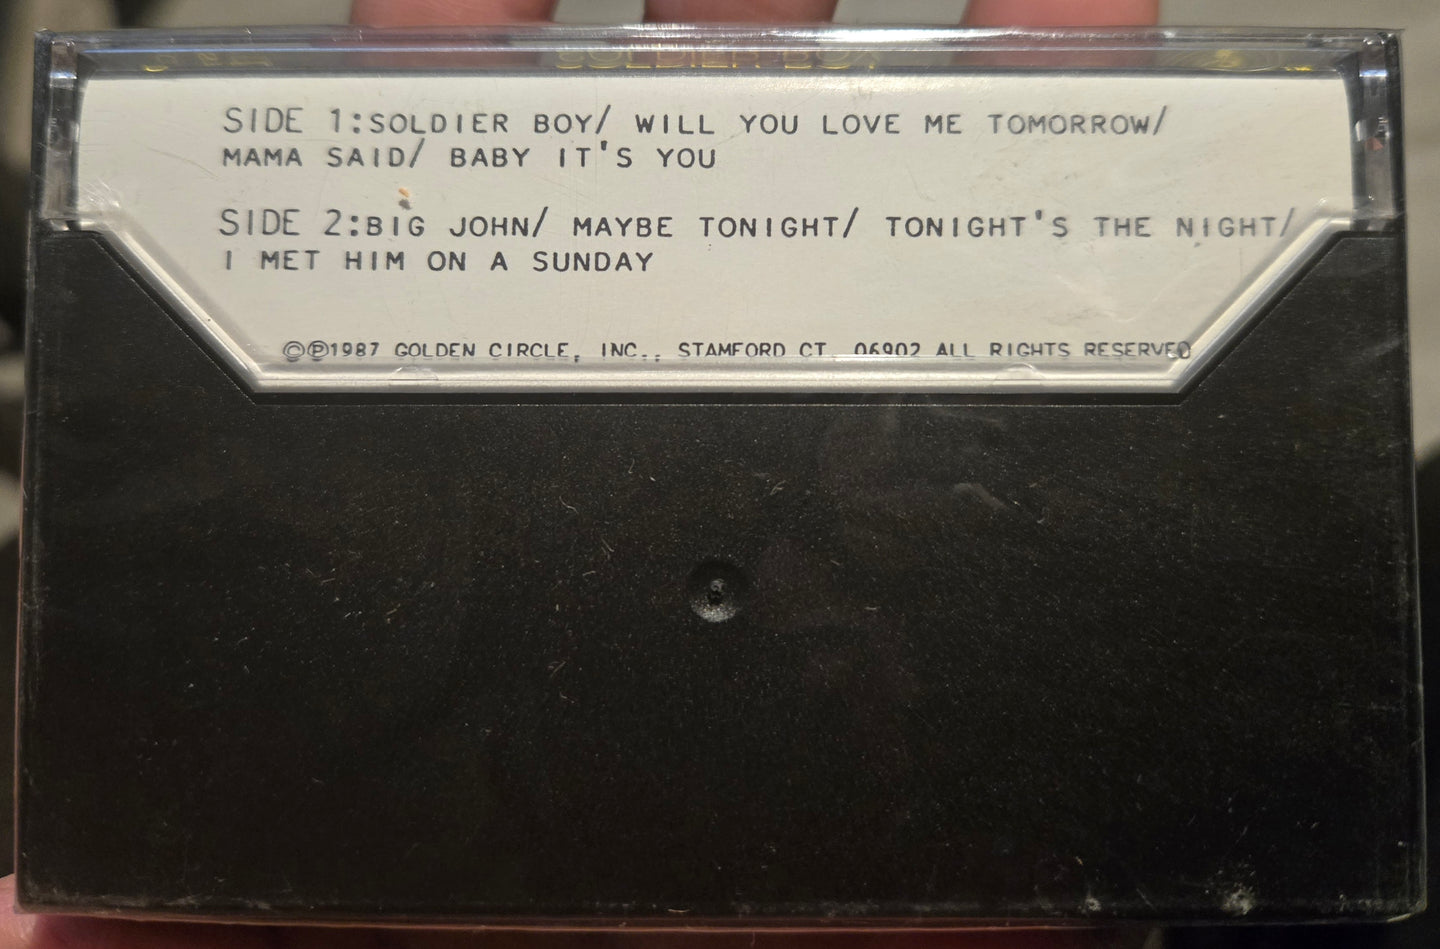 SOLDIER BOY
SIDE 1:SOLDIER BOY/ WILL YOU LOVE ME TOMORROW/
MAMA SAID/ BABY IT'S YOU
SIDE 2:BIG JOHN/ MAYBE TONIGHT/ TONIGHT'S THE NIGHT/
I MET HIM ON A SUNDAY
©℗1987 GOLDEN CIRCLE, INC., STAMFORD CT. 06902 ALL RIGHTS RESERVED